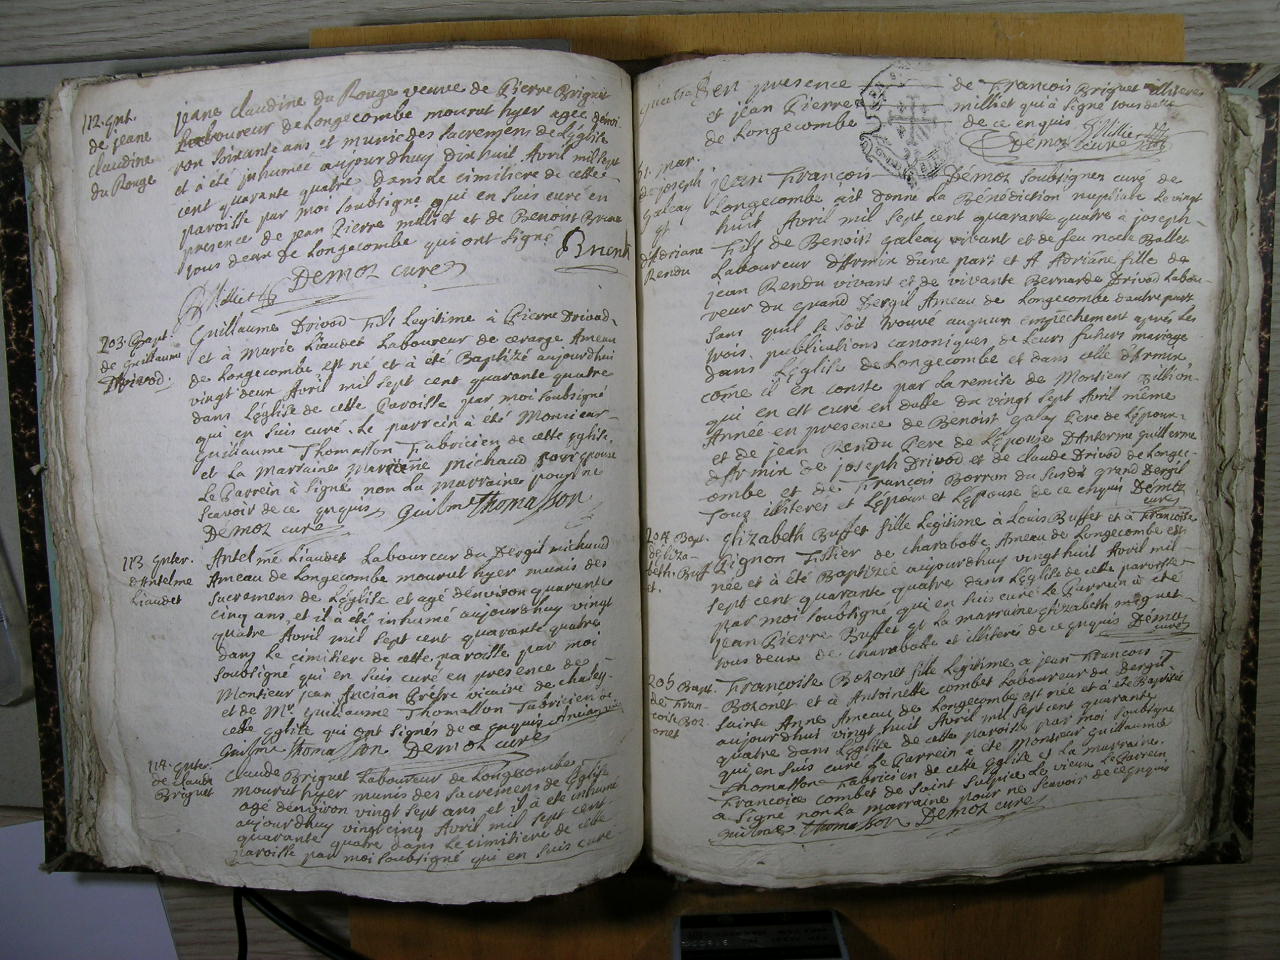 112. Ent.
de jeane
claudine
du Rouge
jeane claudine du Rouge veuve de Pierre Briguet
Laboureur de Longecombe mourut hyer agée denvi-
ron soixante ans et munie des sacremens de l'église
et à été inhumée aujourdhuy dix huit Avril mil sept
cent quarante quatre dans le cimitiere de cette
paroisse par moi soubsigné qui en suis curé en
presence de jean Pierre milliet et de Benoist
tous deux de Longecombe qui ont signé
DEMOZ curé
203. Bapt.
de Guillaume
Drivod.
Guillaume Drivod fils Legitime à Pierre Drivod
et à Marie Liaudet Laboureur de Ameau
de Longecombe est né et à été Baptizé aujourdhui
vingt deux Avril mil sept cent quarante quatre
dans L'église de cette Paroisse par moi soubsigné
qui en suis curé. Le parrein à été Monsieur
Guillaume Thomasson Fabricien de cette église
et La Marraine michaud
Le Parrein à signé non La marraine pour ne
scavoir de ce enquis Guilme Thomasson
DEMOZ curé
113 Enter.
d'Antelme
Liaudet
Antelme Liaudet Laboureur du Dergil michaud
Ameau de Longecombe mourut hyer munis des
sacremens de L'église et agé denviron quarante
cinq ans, et il à été inhumé aujourdhuy vingt
quatre Avril mil sept cent quarante quatre
dans Le cimitiere de cette paroisse par moi
soubsigné qui en suis curé en presence de
Monsieur jean Ancian Prêtre vicaire de chaley
et de Mr. Guillaume Thomasson Fabricien de
cette église qui ont signés de ce enquis Ancian
Guilme Thomasson DEMOZ curé
114. Enter.
de Claude
Briguet
Claude Briguet Laboureur de Longecombe
mourut hyer munis des sacremens de l'église
agé denviron vingt sept ans et il à été inhumé
aujourdhuy vingt cinq Avril mil sept cent
quarante quatre dans Le cimitiere de cette
paroisse par moi soubsigné qui en suis curé
en presence de François Briguet
et jean Pierre milliet qui à signé
de Longecombe de ce enquis
DEMOZ curé
mar.
de joseph
Galeay
et
d'Adriane
Rendu
jean François DEMOZ soubsigner curé de
Longecombe ait donné La Bénédiction nuptiale Le vingt
huit Avril mil sept cent quarante quatre à joseph
Fils de Benoist galeay vivant et de feu Ballet
Laboureur d'Armix d'une part et à Adriane fille de
jean Rendu vivant et de vivante Bernarde Drivod Labou-
reur du grand Dergil Ameau de Longecombe d'autre part
sans quil se soit trouvé auqun empechement après Les
trois publications canoniques de Leurs futurs mariage
dans L'église de Longecombe et dans celle d'Armix
come il en conste par La remise de Monsieur Billion
qui en est curé en datte du vingt sept Avril même
Année en presence de Benoist galay Pere de L'épour
et de jean Rendu Pere de L'épouse d'Anterme guillerme
d'Armix de joseph Drivod et de Claude Drivod de Longe-
ombe et de François Borron du susdit grand Dergil
tous illiteres et L'epoux et L'epouse de ce enquis DEMOZ
curé
204 Bapt.
d'Eliza-
beth Buff
et.
Elizabeth Buffet fille Legitime à Louis Buffet et à Francoise
Lignon Tissier de charabotte Ameau de Longecombe est
née et à été Baptizée aujourdhuy vingt huit Avril mil
sept cent quarante quatre dans L'église de cette paroisse
par moi soubsigné qui en suis curé Le Parrein à été
jean Pierre Buffet et La marraine Elizabeth
tous deux de charabotte et illiteré de ce enquis DEMOZ
curé
205 Bapt.
de Fran-
coise Boz-
onet
Francoise Bozonet fille Legitime a jean Francois
Bozonet et à Antoinette combet Laboureur du Dergil
sainte Anne Ameau de Longecombe, est née et à été Baptizée
aujourdhuy vingt huit Avril mil sept cent quarante
quatre dans L'église de cette paroisse par moi soubsigné
qui en suis curé Le Parrein à été Monsieur Guillaume
Thomasson Fabricien de cette Eglise et La marraine
Francoise combet de saint sulpice Le vieux Le Parrein
à signé non La marraine pour ne scavoir de ce enquis
Thomasson DEMOZ curé